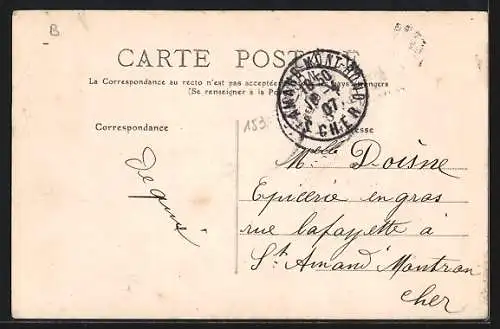 B
CARTE POSTALE
La Correspondance au recto n'est pas acceptée pays étrangers
(Se renseigner à la Po
ST AMAND-MONT-ROND
18 50
07
CHER
Correspondance
153
esse
Melle Doisne
Epicerie en gros
rue lafayette à
St. Amand Montron
Cher
De qui